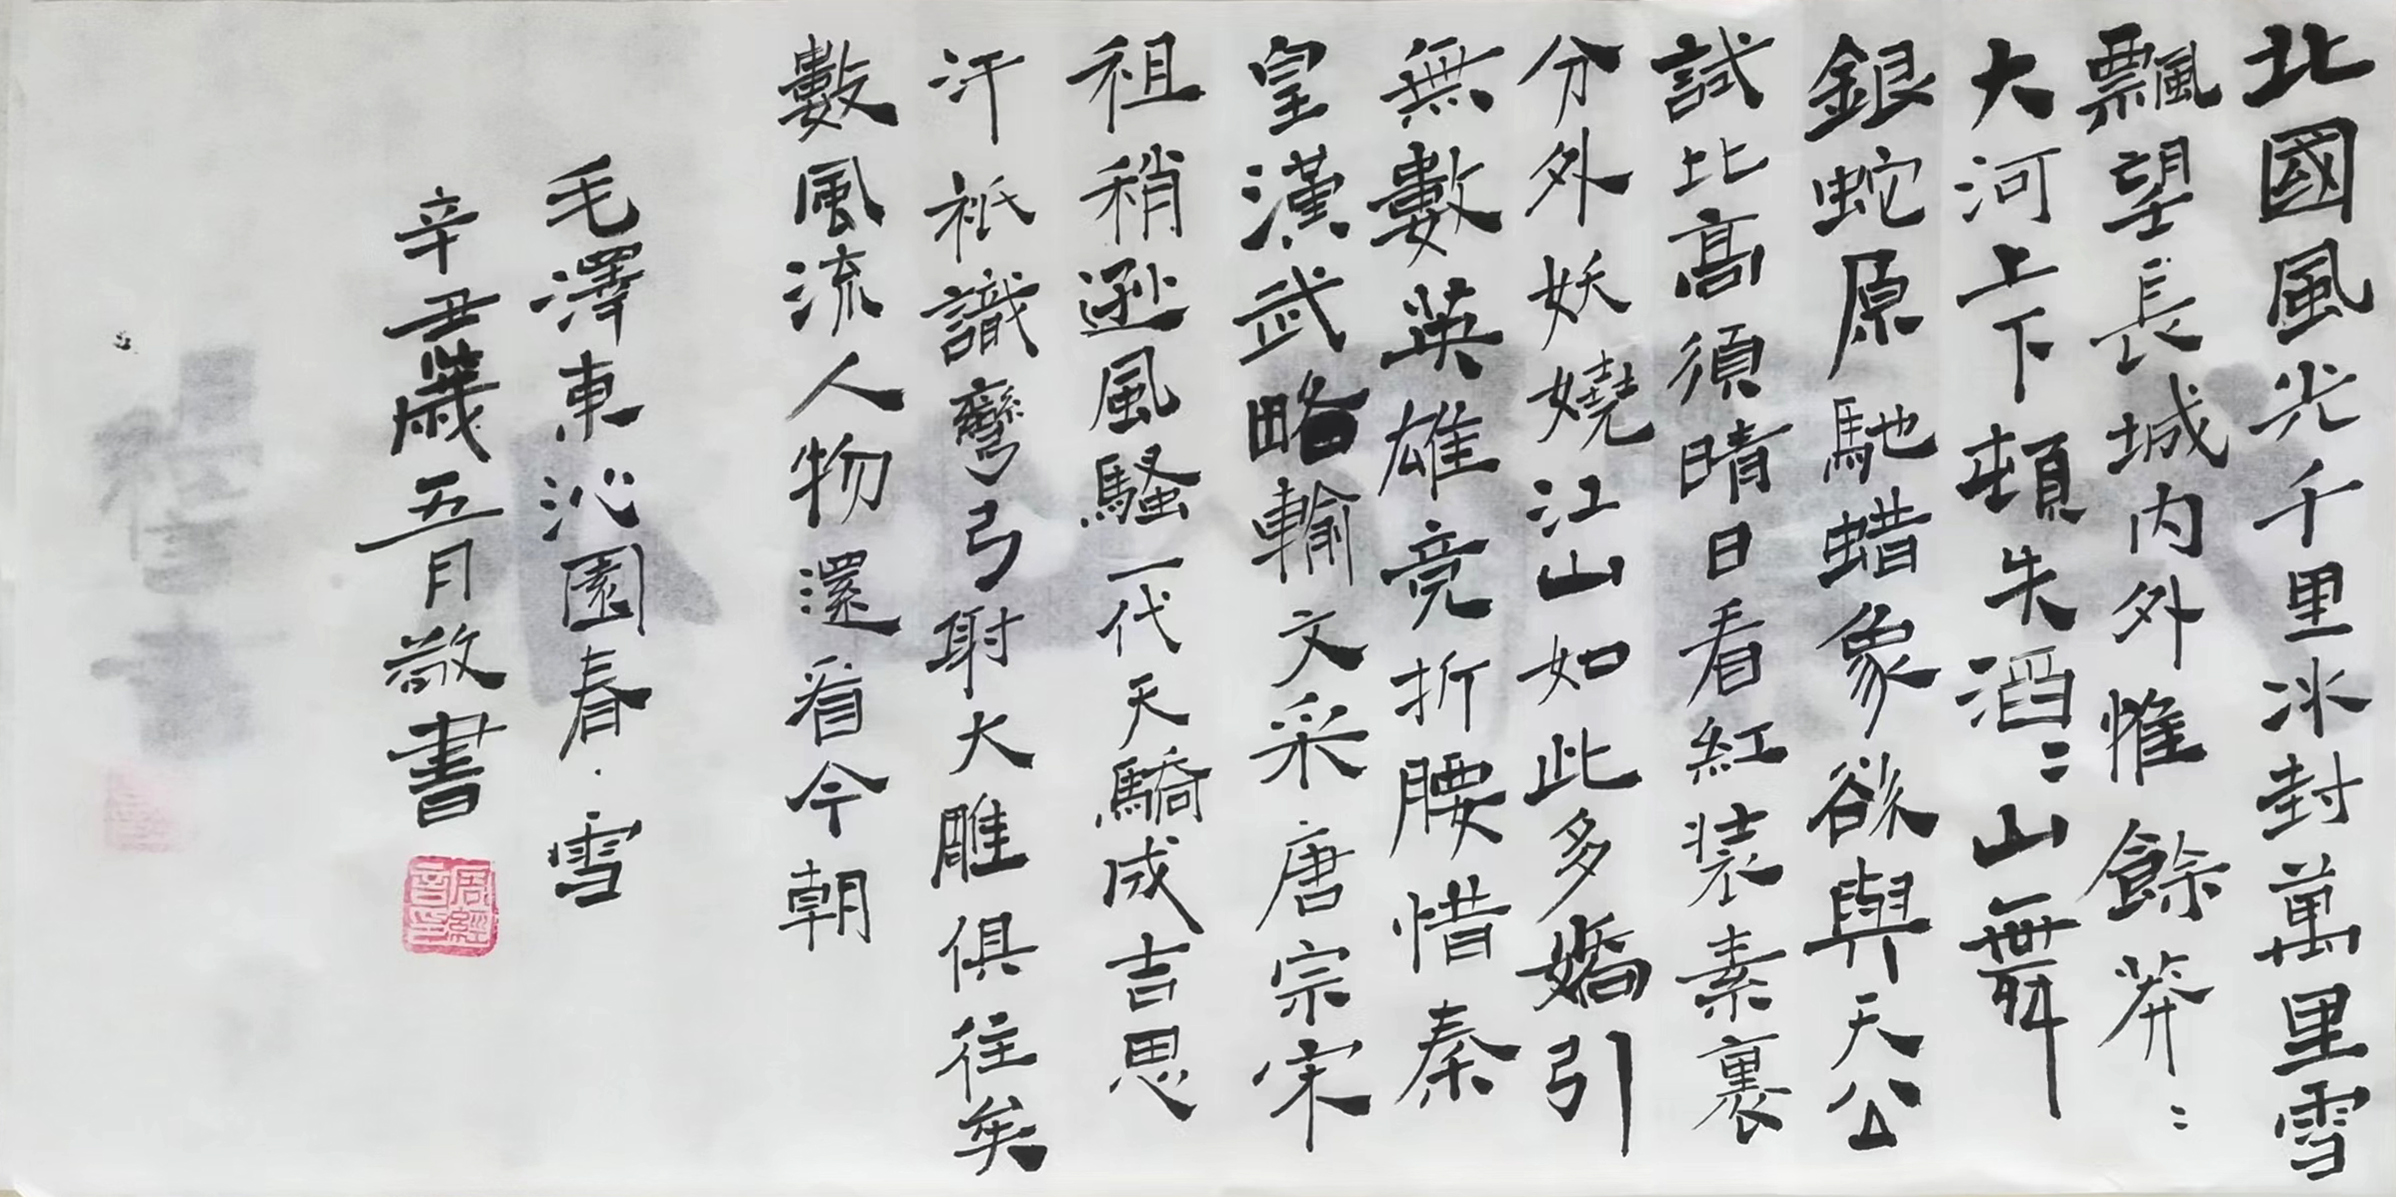 北國風光千里冰封萬里雪
飄望長城内外惟餘莽〻
大河上下頓失滔〻山舞
銀蛇原馳蜡象欲與天公
試比高須晴日看紅装素裹
分外妖嬈江山如此多嬌引
無數英雄竞折腰惜秦
皇漢武略輸文采唐宗宋
祖稍遜風騷一代天驕成吉思
汗祇識彎弓射大雕俱往矣
數風流人物還看今朝
毛澤東沁園春·雪
辛丑歲五月敬書